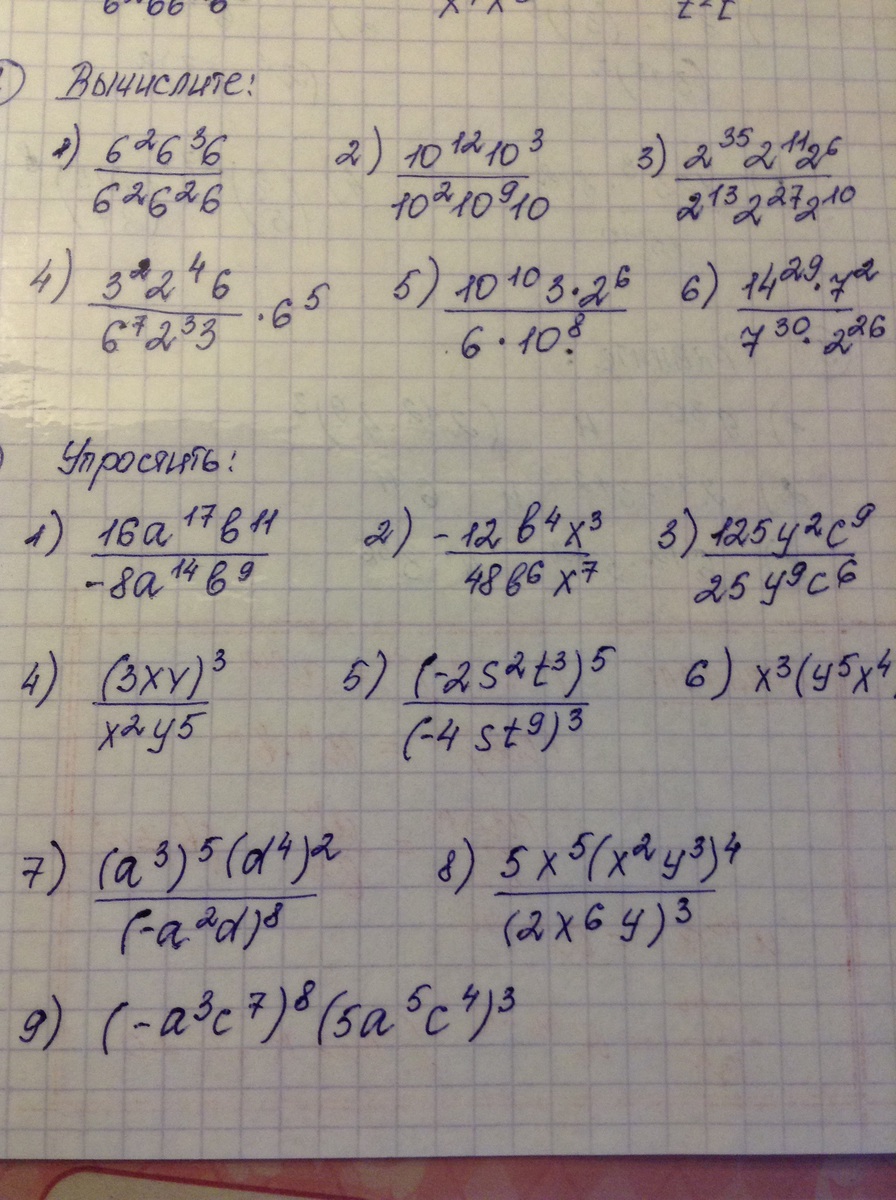 Вычислите:
1) 6²6³6 / 6²6²6 2) 10¹²10³ / 10²10⁹10 3) 2³⁵2¹¹2⁶ / 2¹³2²⁷2¹⁰
4) 3²2⁴6 / 6⁷2³3 · 6⁵ 5) 10¹⁰3·2⁶ / 6·10⁸ 6) 14²⁹·7² / 7³⁰·2²⁶
Упростить:
1) 16a¹⁷b¹¹ / -8a¹⁴b⁹ 2) -12b⁴x³ / 48b⁶x⁷ 3) 125y²c⁹ / 25y⁹c⁶
4) (3xy)³ / x²y⁵ 5) (-2s²t³)⁵ / (-4st⁹)³ 6) x³(y⁵x⁴
7) (a³)⁵(d⁴)² / (-a²d)⁸ 8) 5x⁵(x²y³)⁴ / (2x⁶y)³
9) (-a³c⁷)⁸(5a⁵c⁴)³